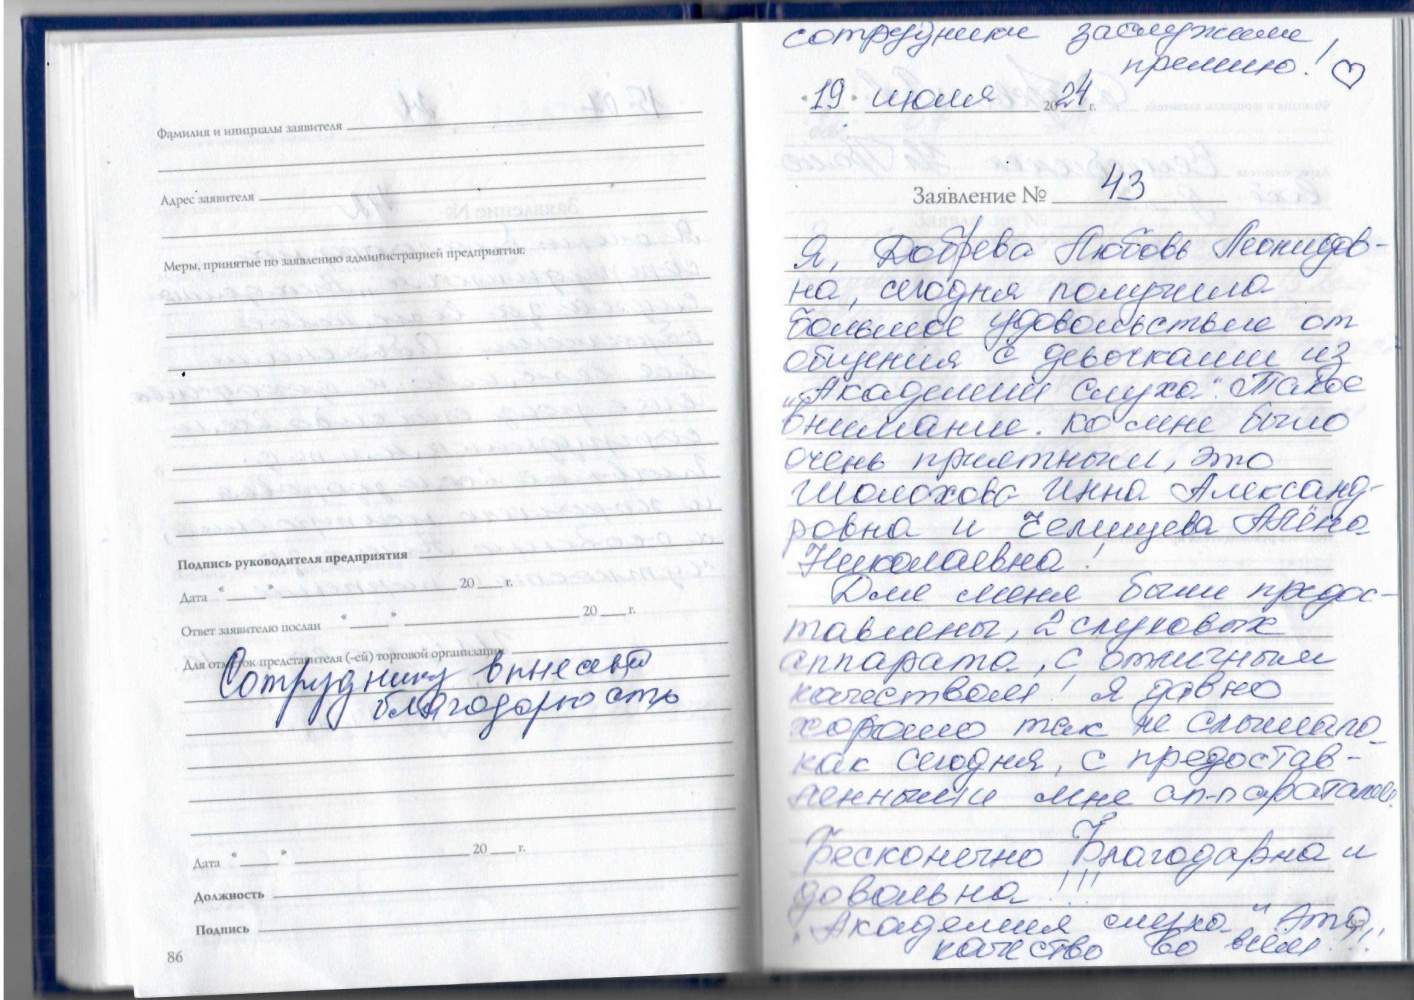 Фамилия и инициалы заявителя
Адрес заявителя
Меры, принятые по заявлению администрацией предприятия:
Подпись руководителя предприятия
Дата “ ” 20 г.
Ответ заявителю послан “ ” 20 г.
Для отметок представителя (-ей) торговой организации
Сотруднику внесена
благодарность
Дата “ ” 20 г.
Должность
Подпись
86
сотрудники заслужили
премию! ♡
“19” июля 2024 г.
Заявление № 43
Я, Добрева Любовь Леонидов-
на, сегодня получила
большое удовольствие от
общения с девочками из
„Академии слуха". Такое
внимание ко мне было
очень приятным, это
Шолохова Инна Александ-
ровна и Челищева Алёна
Николаевна!
Для меня были предос-
тавлены, 2 слуховых
аппарата, с отличным
качеством! Я давно
хорошо так не слышала,
как сегодня, с предостав-
ленными мне ап-паратами.
Бесконечно Благодарна и
довольна!!!
„Академия слуха" это
качество во всём!!!